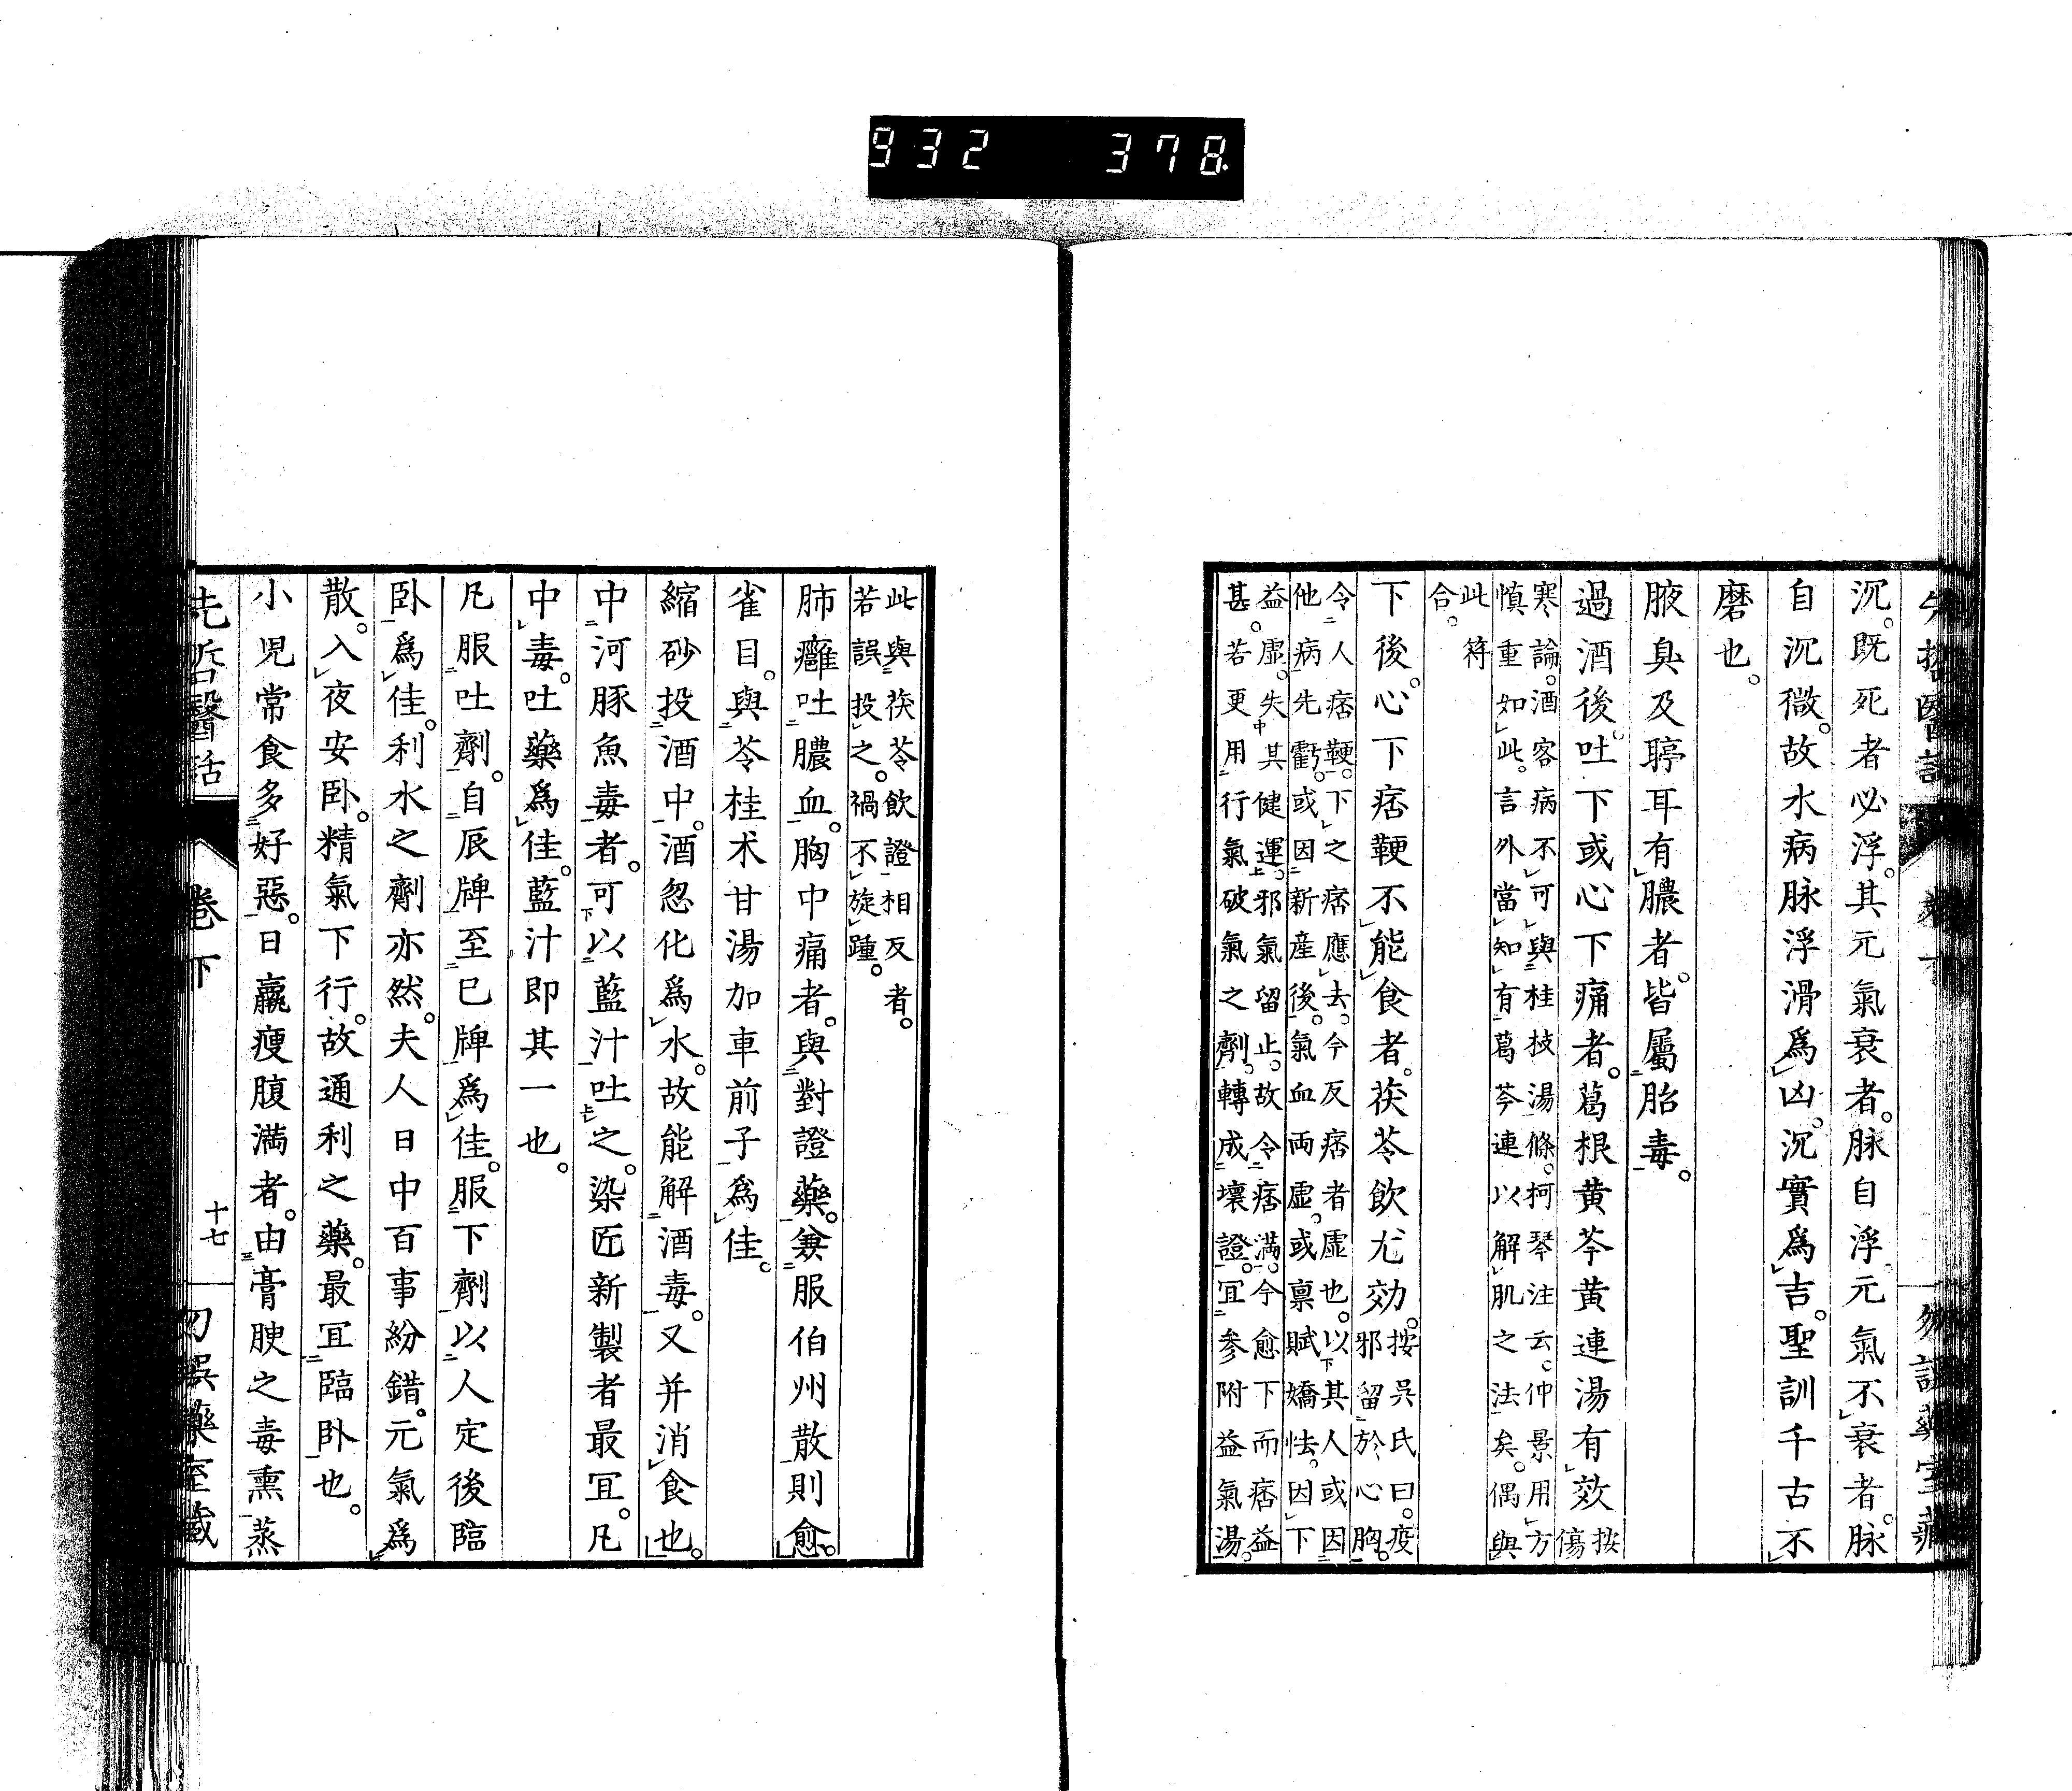 932 378
先哲醫話 卷下 勿誤藥室藏
沉。既死者必浮。其元氣衰者。脉自浮。元氣不衰者。脉
自沉微。故水病脉浮滑爲凶。沉實爲吉。聖訓千古不
磨也。
腋臭及聤耳有膿者。皆屬胎毒。
過酒後吐下或心下痛者。葛根黄芩黄連湯有效 按傷
寒論。酒客病不可與桂枝湯條。柯琴注云。仲景用方
慎重如此。言外當知有葛芩連以解肌之法矣。偶與
此符
合。
下後。心下痞鞕不能食者。茯苓飲尤効。 按吳氏曰。疫邪留於心胸。
令人痞鞕。下之痞應去。今反痞者虛也。以其人或因
他病先虧。或因新產後。氣血両虛。或禀賦嬌怯。因下
益虛。失其健運。邪氣留止。故令痞満。今愈下而痞益
甚。若更用行氣破氣之劑。轉成壞證。冝參附益氣湯。
此與茯苓飲證相反者。
若誤投之。禍不旋踵。
肺癰吐膿血。胸中痛者。與對證藥。兼服伯州散則愈。
雀目。與苓桂朮甘湯加車前子爲佳。
縮砂投酒中。酒忽化爲水。故能解酒毒。又并消食也。
中河豚魚毒者。可以藍汁吐之。染匠新製者最冝。凡
中毒。吐藥爲佳。藍汁即其一也。
凡服吐劑。自辰牌至巳牌爲佳。服下劑以人定後臨
卧爲佳。利水之劑亦然。夫人日中百事紛錯。元氣爲
散。入夜安卧。精氣下行。故通利之藥。最冝臨卧也。
小児常食多好惡。日羸瘦腹満者。由膏腴之毒熏蒸
先哲醫話 卷下 十七 勿誤藥室藏